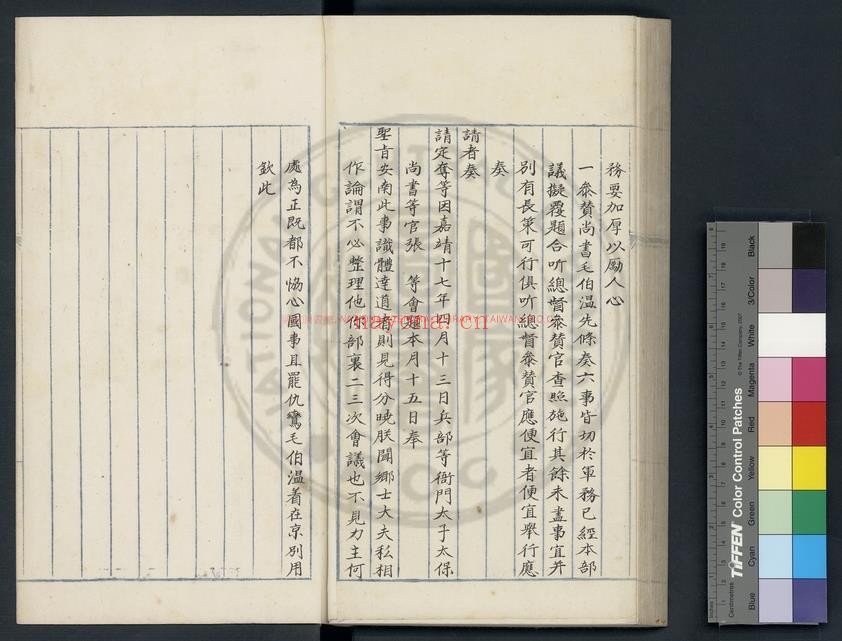 務要加厚以勵人心
一參贊尚書毛伯溫先條奏六事皆切於軍務已經本部
議擬覆題合听總督參贊官查照施行其餘未盡事宜并
別有長策可行俱听總督參贊官應便宜者便宜舉行應
奏
請者奏
請定奪等因嘉靖十七年四月十三日兵部等衙門太子太保
尚書等官張 等會題本月十五日奉
聖旨安南此事識體達道者則見得分曉朕聞卿士大夫私相
作論謂不必整理他你部裏二三次會議也不見力主何
處為正既都不恊心國事且罷仇鸞毛伯溫着在京別用
欽此
nayona.cn
TIFFEN Color Control Patches
© The Tiffen Company, 2007
Centimetres
Inches
Blue
Cyan
Green
Yellow
Red
Magenta
White
3/Color
Black